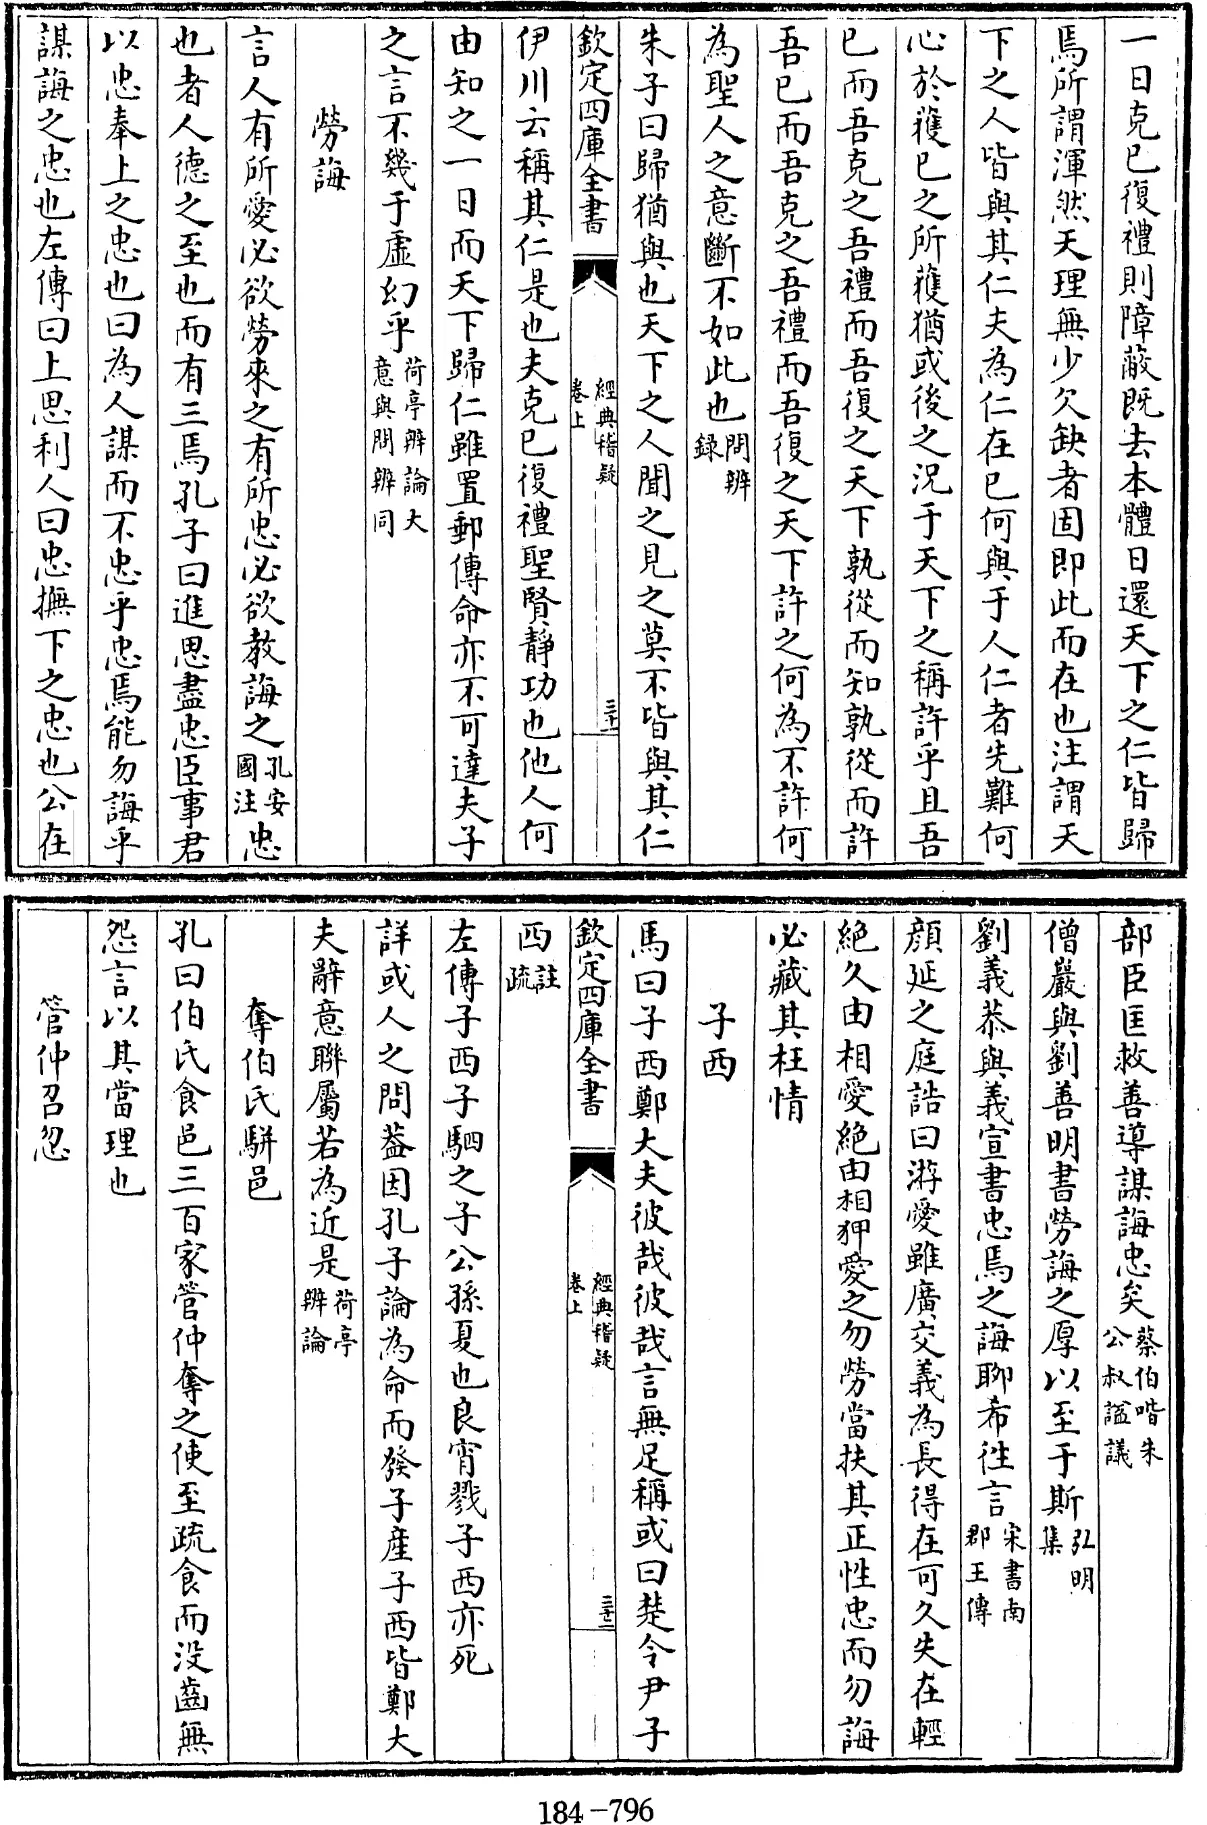 一日克已復禮則障蔽既去本體日還天下之仁皆歸
焉所謂渾然天理無少欠缺者固即此而在也注謂天
下之人皆與其仁夫為仁在已何與于人仁者先難何
心於獲已之所獲猶或後之況于天下之稱許乎且吾
已而吾克之吾禮而吾復之天下孰從而知孰從而許
吾已而吾克之吾禮而吾復之天下許之何為不許何
為聖人之意斷不如此也問辨錄
朱子曰歸猶與也天下之人聞之見之莫不皆與其仁
欽定四庫全書 經典稽疑 卷上 三十一
伊川云稱其仁是也夫克已復禮聖賢靜功也他人何
由知之一日而天下歸仁雖置郵傳命亦不可達夫子
之言不幾于虛幻乎荷亭辨論大意與問辨同
勞誨
言人有所愛必欲勞來之有所忠必欲教誨之孔安國注忠
也者人德之至也而有三焉孔子曰進思盡忠臣事君
以忠奉上之忠也曰為人謀而不忠乎忠焉能勿誨乎
謀誨之忠也左傳曰上思利人曰忠撫下之忠也公在
部臣匡救善導謀誨忠矣蔡伯喈朱公叔諡議
僧巖與劉善明書勞誨之厚以至于斯弘明集
劉義恭與義宣書忠焉之誨聊希往言宋書南郡王傳
顏延之庭誥曰游愛雖廣交義為長得在可久失在輕
絕久由相愛絕由相狎愛之勿勞當扶其正性忠而勿誨
必藏其枉情
子西
馬曰子西鄭大夫彼哉彼哉言無足稱或曰楚令尹子
欽定四庫全書 經典稽疑 卷上 三十二
西註疏
左傳子西子駟之子公孫夏也良宵戮子西亦死
詳或人之問葢因孔子論為命而發子產子西皆鄭大
夫辭意聯屬若為近是荷亭辨論
奪伯氏駢邑
孔曰伯氏食邑三百家管仲奪之使至疏食而没齒無
怨言以其當理也
管仲召忽
184-796